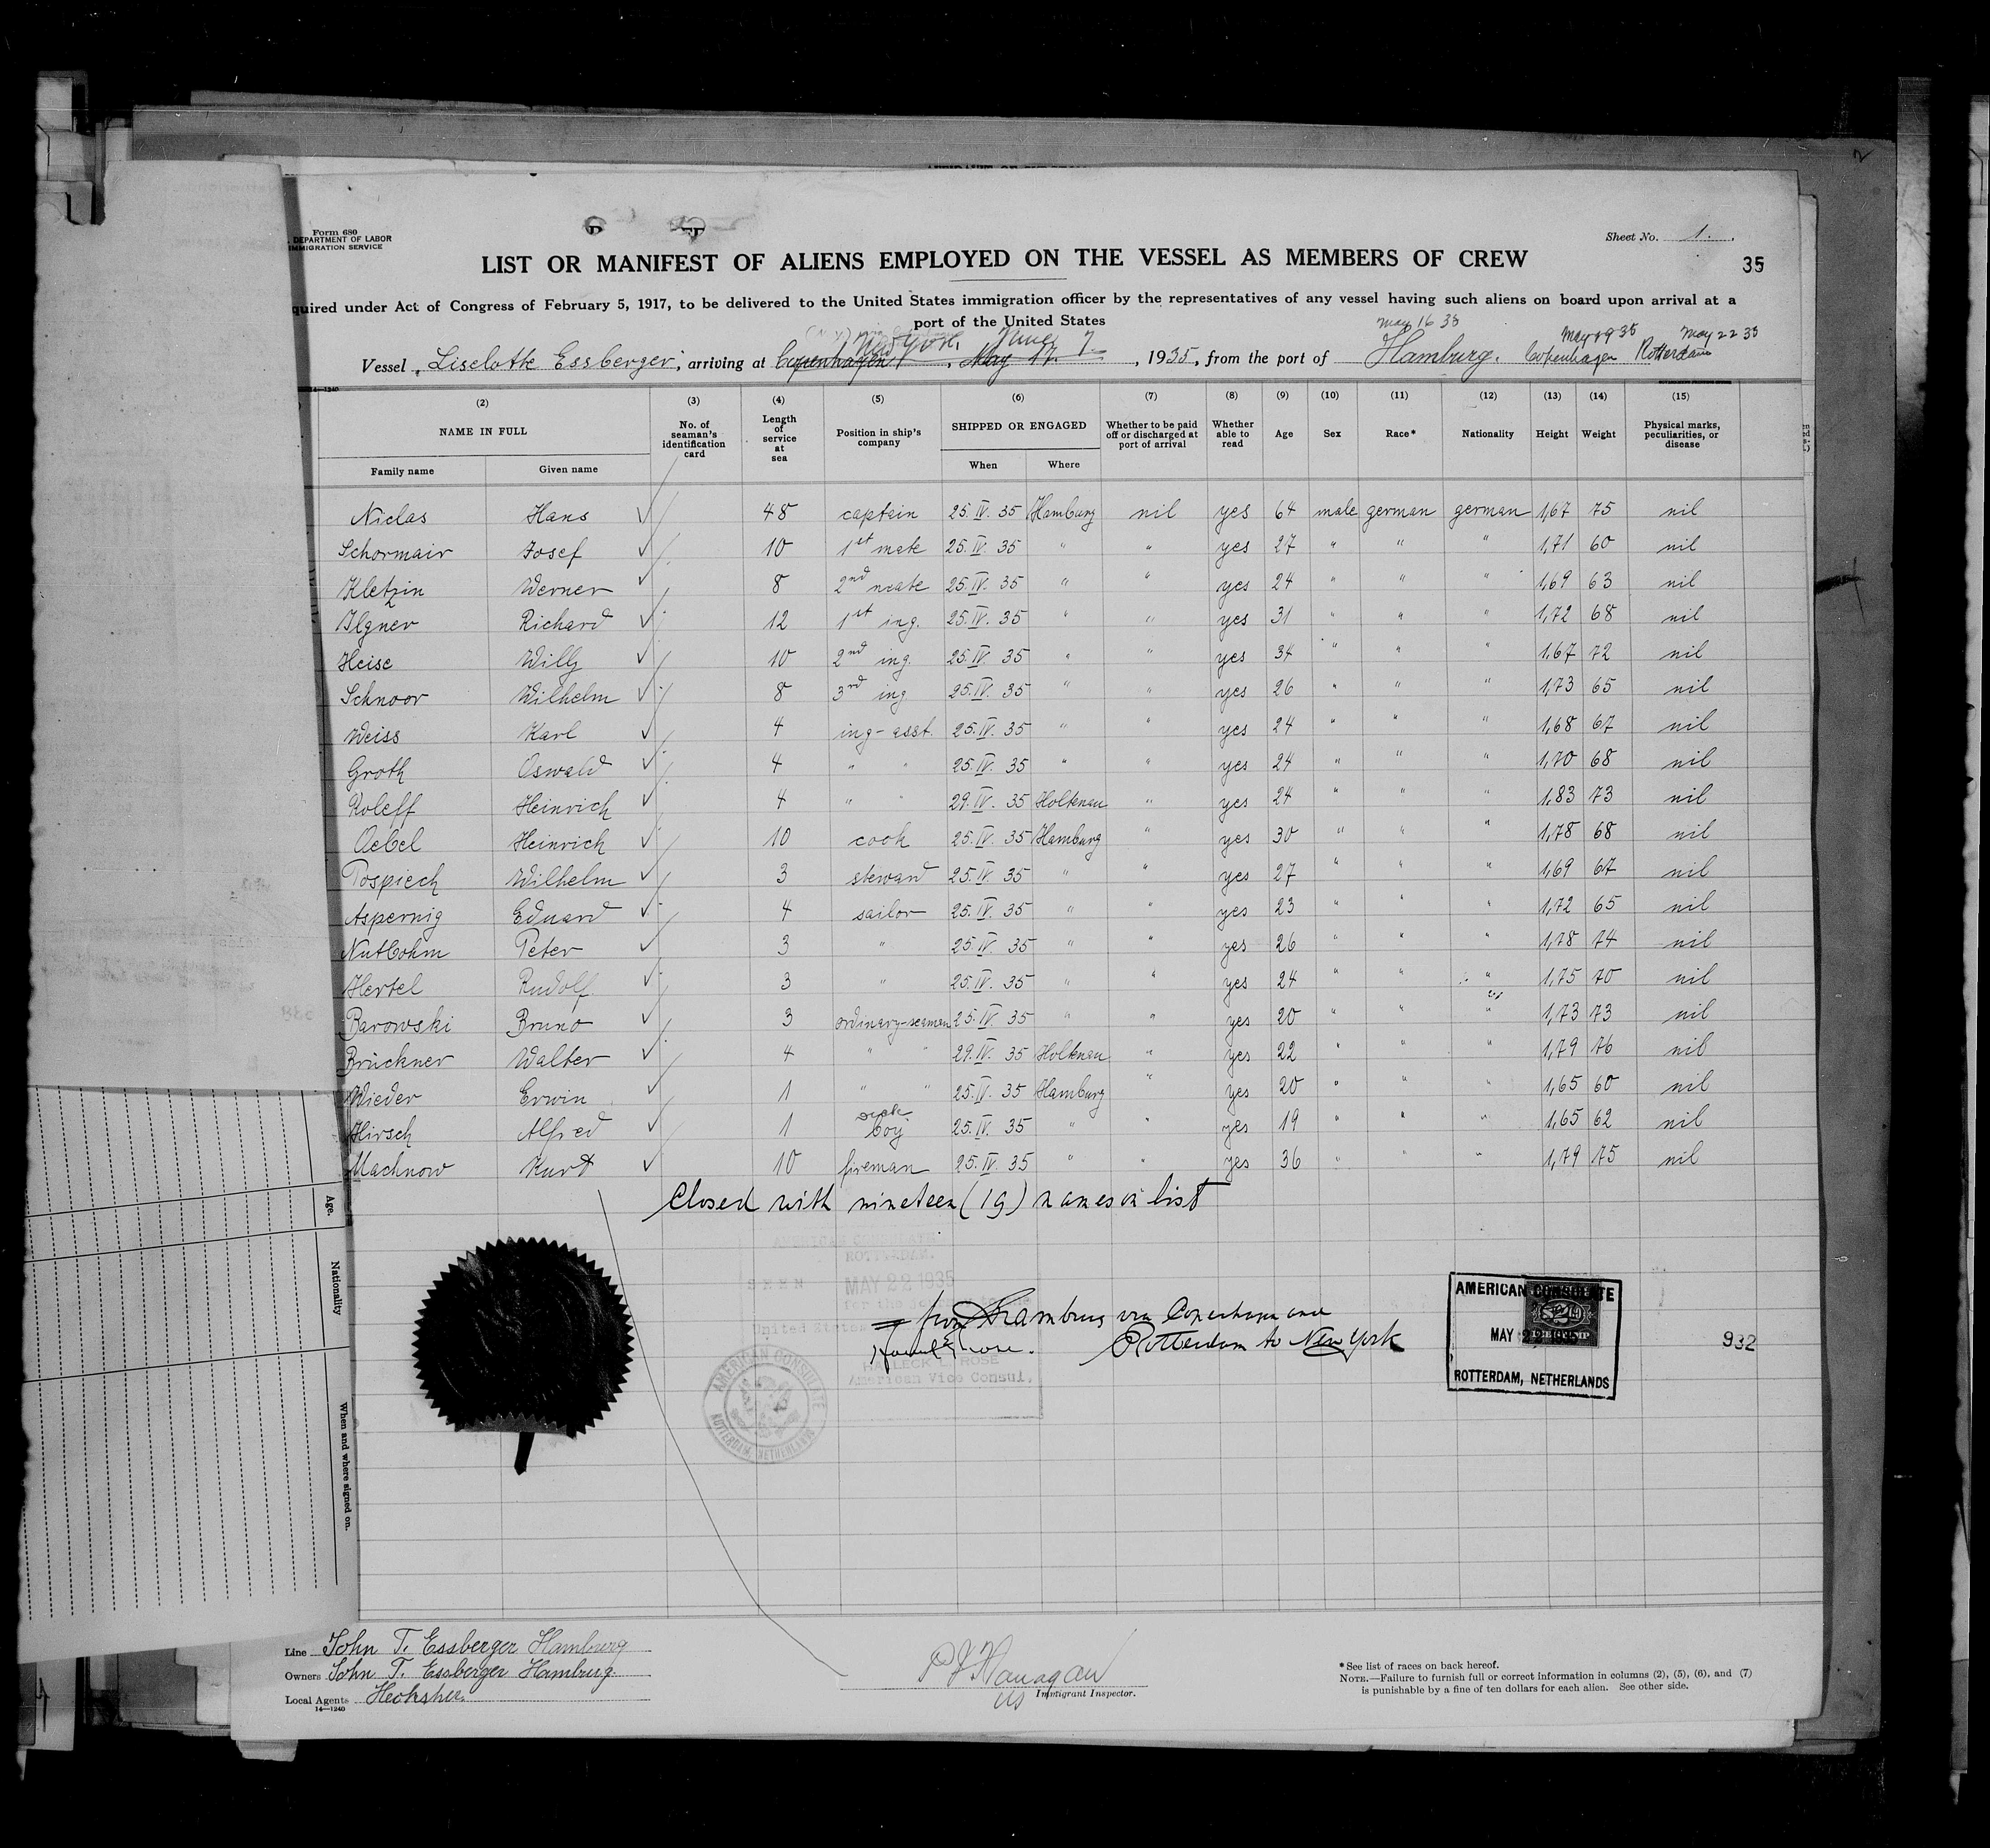 2
Form 680
DEPARTMENT OF LABOR
IMMIGRATION SERVICE
Sheet No. 1.
LIST OR MANIFEST OF ALIENS EMPLOYED ON THE VESSEL AS MEMBERS OF CREW
35
quired under Act of Congress of February 5, 1917, to be delivered to the United States immigration officer by the representatives of any vessel having such aliens on board upon arrival at a
port of the United States
May 16 35 May 19 35 May 22 35
New York, June 7
Vessel Liselotte Essberger, arriving at Copenhagen, May 17. , 1935, from the port of Hamburg. Copenhagen Rotterdam
14—1240
(2) (3) (4) (5) (6) (7) (8) (9) (10) (11) (12) (13) (14) (15)
NAME IN FULL No. of seaman's identification card Length of service at sea Position in ship's company SHIPPED OR ENGAGED Whether to be paid off or discharged at port of arrival Whether able to read Age Sex Race* Nationality Height Weight Physical marks, peculiarities, or disease
Family name Given name When Where
Niclas Hans 48 captain 25.IV.35 Hamburg nil yes 64 male german german 1,67 75 nil
Schormair Josef 10 1st mate 25.IV.35 " " yes 27 " " " 1,71 60 nil
Kletzin Werner 8 2nd mate 25.IV.35 " " yes 24 " " " 1,69 63 nil
Ilgner Richard 12 1st ing. 25.IV.35 " " yes 31 " " " 1,72 68 nil
Heise Willy 10 2nd ing. 25.IV.35 " " yes 34 " " " 1,67 72 nil
Schnoor Wilhelm 8 3rd ing 25.IV.35 " " yes 26 " " " 1,73 65 nil
Weiss Karl 4 ing-asst. 25.IV.35 " " yes 24 " " " 1,68 67 nil
Groth Oswald 4 " " 25.IV.35 " " yes 24 " " " 1,70 68 nil
Roleff Heinrich 4 " " 29.IV.35 Holtenau " yes 24 " " " 1,83 73 nil
Oebel Heinrich 10 cook 25.IV.35 Hamburg " yes 30 " " " 1,78 68 nil
Pospiech Wilhelm 3 steward 25.IV.35 " " yes 27 " " " 1,69 67 nil
Aspernig Eduard 4 sailor 25.IV.35 " " yes 23 " " " 1,72 65 nil
Nutbohm Peter 3 " 25.IV.35 " " yes 26 " " " 1,78 74 nil
Hertel Rudolf 3 " 25.IV.35 " " yes 24 " " " 1,75 70 nil
Barowski Bruno 3 ordinary-seaman 25.IV.35 " " yes 20 " " " 1,73 73 nil
Brückner Walter 4 " " 29.IV.35 Holtenau " yes 22 " " " 1,79 76 nil
Wieder Erwin 1 " " 25.IV.35 Hamburg " yes 20 " " " 1,65 60 nil
Hirsch Alfred 1 deck boy 25.IV.35 " " yes 19 " " " 1,65 62 nil
Machnow Kurt 10 fireman 25.IV.35 " " yes 36 " " " 1,79 75 nil
Closed with nineteen (19) names on list
AMERICAN CONSULATE
ROTTERDAM.
SEEN MAY 22 1935
United States
from Hamburg via Copenhagen and
Rotterdam to New York
HALLECK L. ROSE
American Vice Consul.
AMERICAN CONSULATE
ROTTERDAM, NETHERLANDS
AMERICAN CONSULATE
MAY 22 1935
ROTTERDAM, NETHERLANDS
932
Age.
Nationality
When and where signed on.
Line John T. Essberger Hamburg
Owners John T. Essberger Hamburg.
Local Agents Hecksher.
14—1240
P J Flanagan
Immigrant Inspector.
* See list of races on back hereof.
NOTE.—Failure to furnish full or correct information in columns (2), (5), (6), and (7)
is punishable by a fine of ten dollars for each alien. See other side.